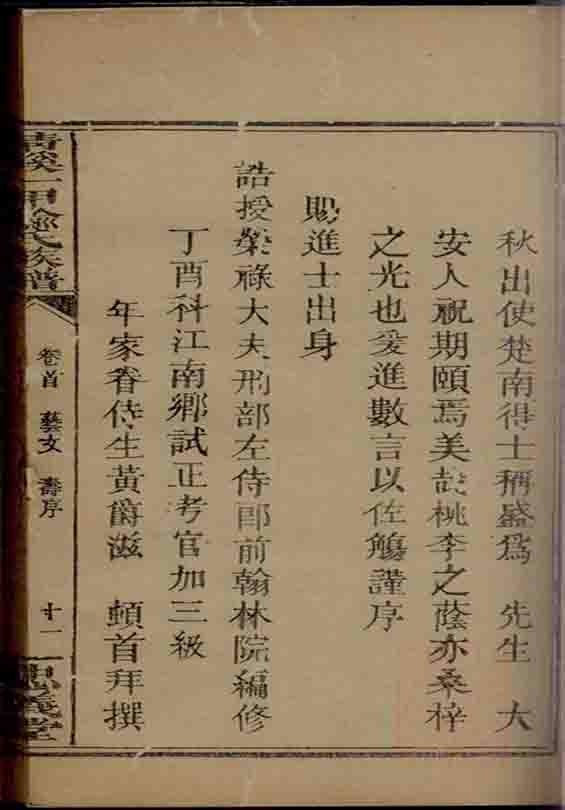 秋出使楚南得士稱盛爲 先生 大
安人祝期頤焉美哉桃李之蔭亦桑梓
之光也爰進數言以佐觴謹序
賜進士出身
誥授榮祿大夫刑部左侍郎前翰林院編修
丁酉科江南鄉試正考官加三級
年家眷侍生黃爵滋 頓首拜撰
氏族譜
卷首 藝文 壽序
十一